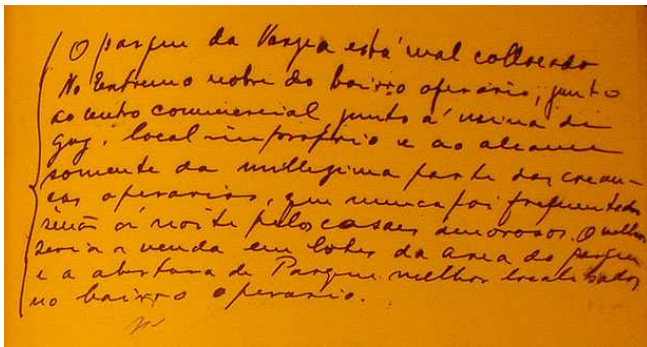 O parque da Varzea está mal collocado
No extremo nobre do bairro operário, junto
ao centro commercial junto á usina de
gaz, local improprio e ao alcance
somente da millesima parte das crean-
ças operarias, que nunca foi frequentado
senão á noite pelos casaes amorosos. O melhor
seria a venda em lotes da area do parque
e a abertura de Parque melhor localisados
no bairro operario.